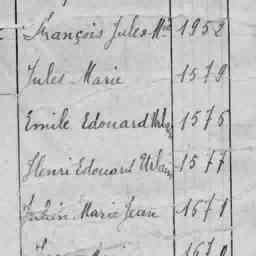 François Jules Mie 1952
Jules Marie 1579
Emile Edouard 1575
Henri Edouard Urbain 1577
Julien Marie Jean 1571